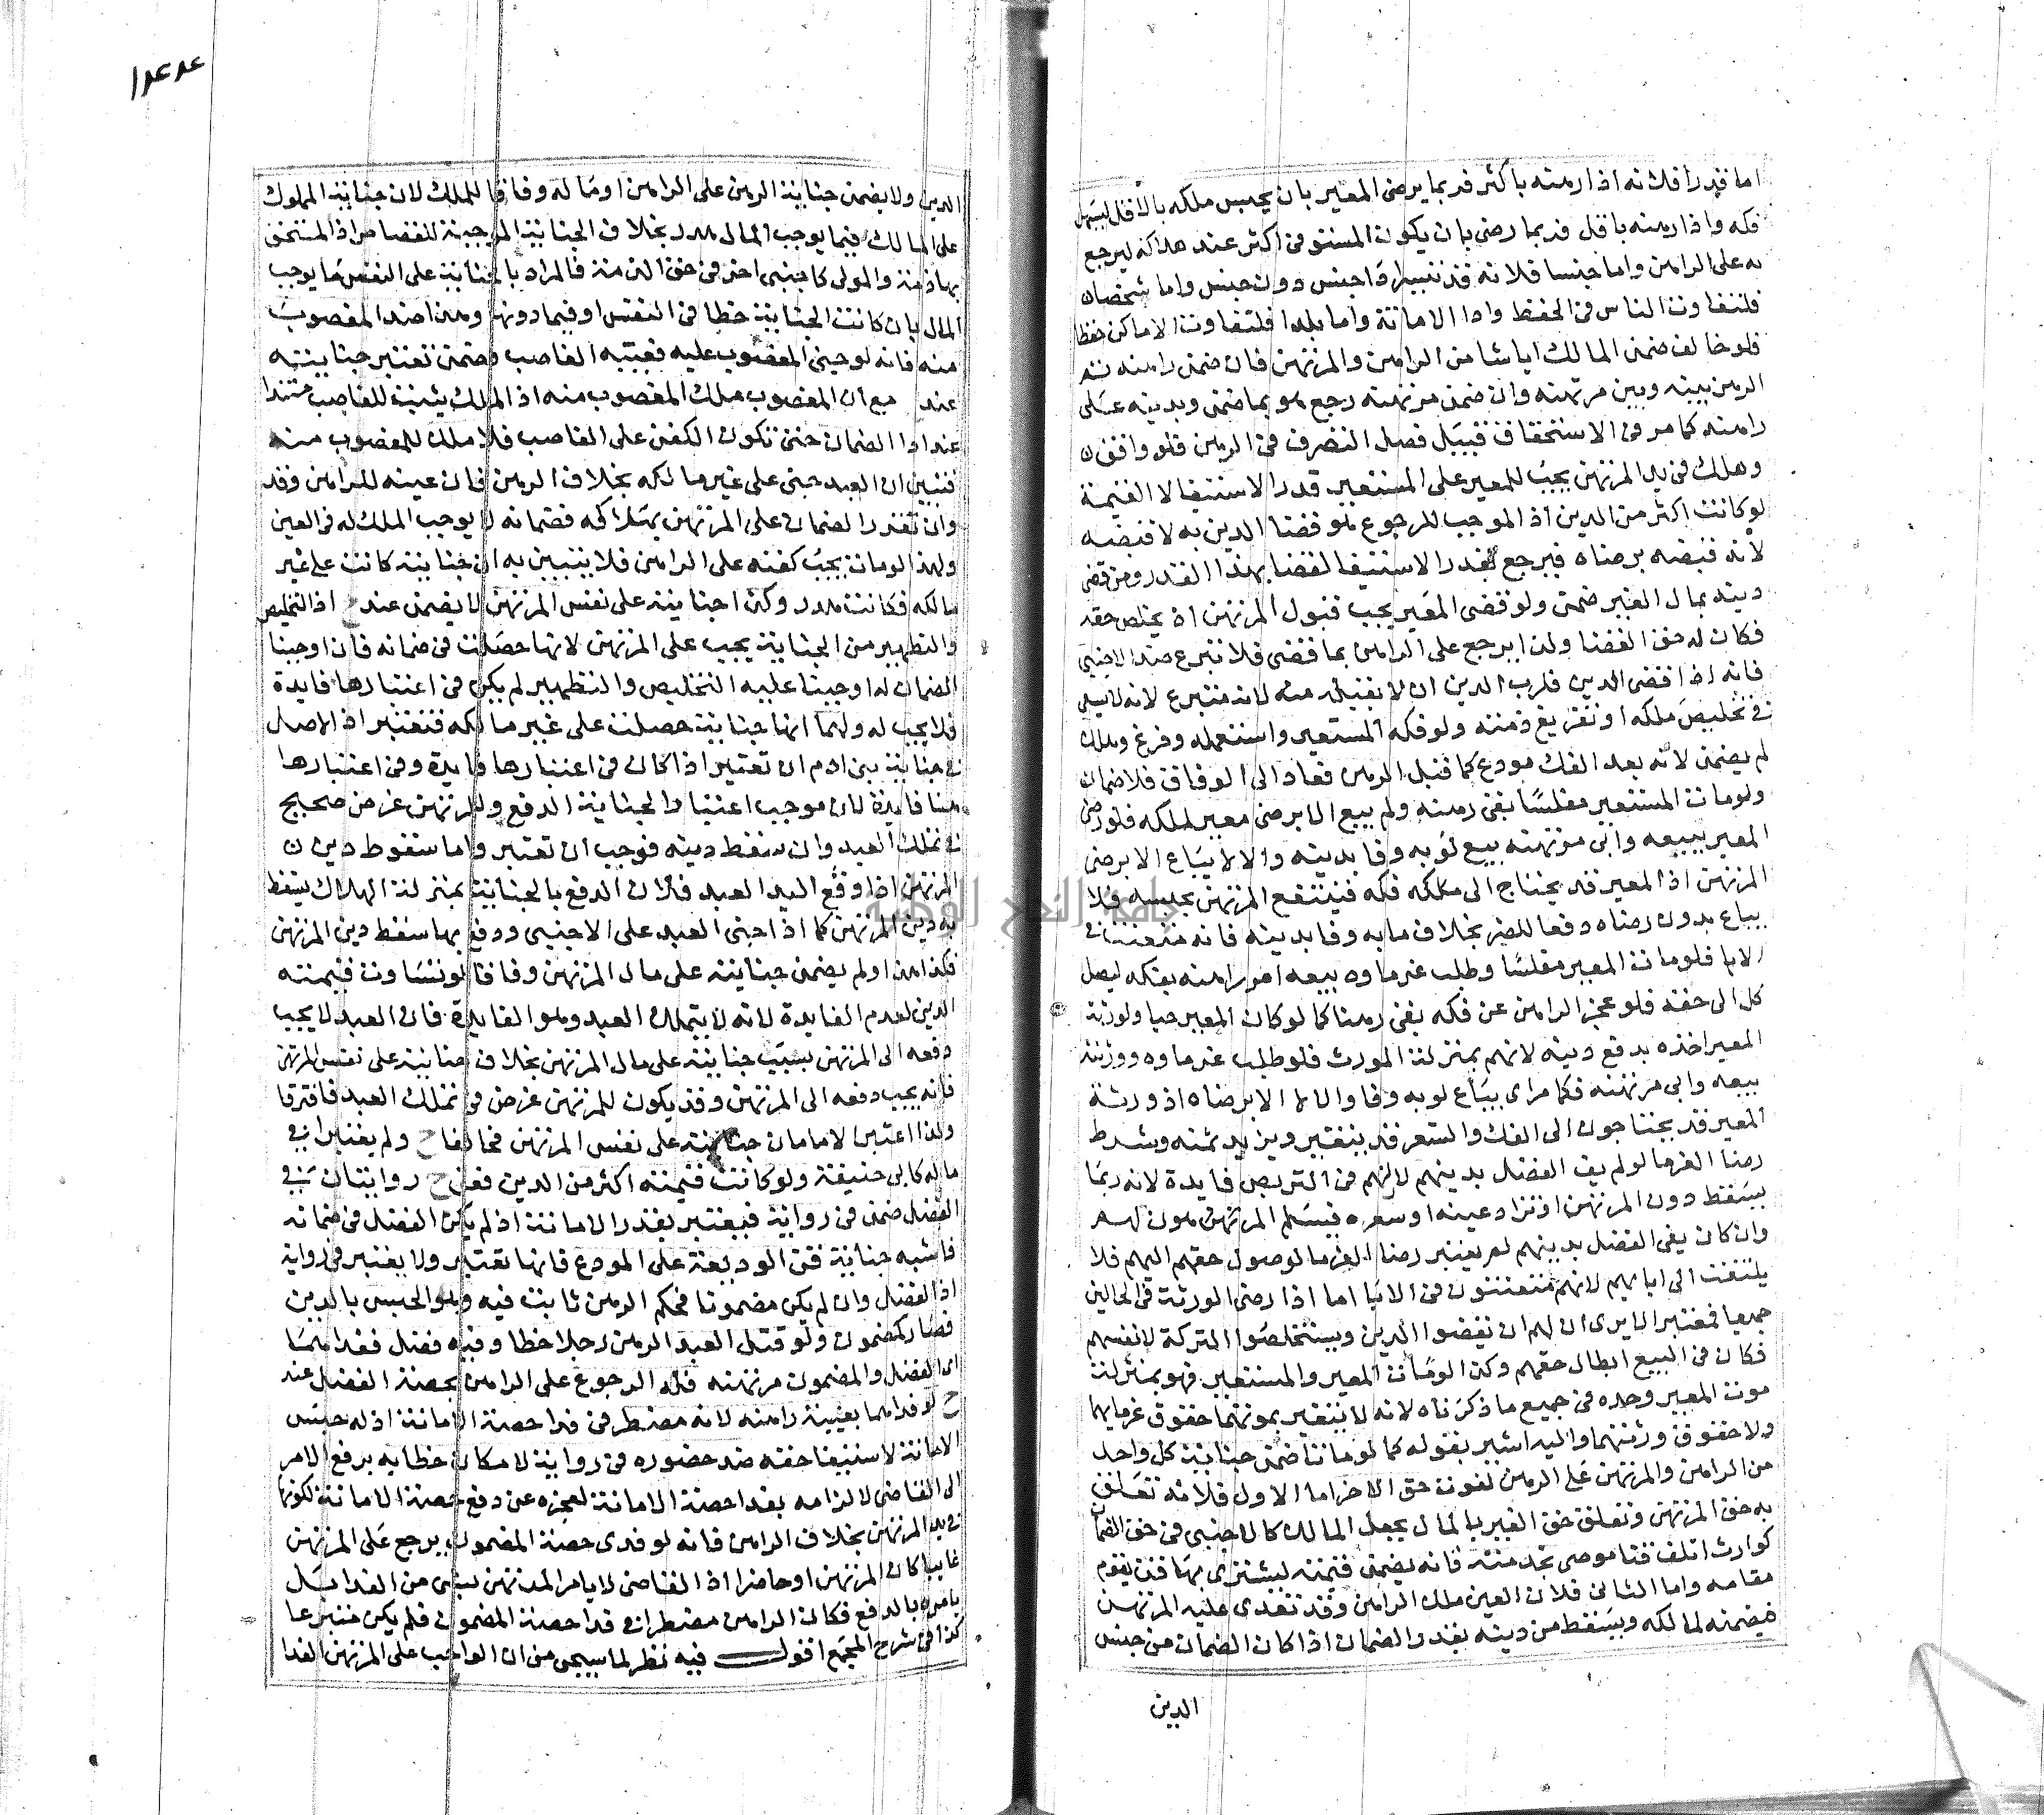 اما قدرا فلانه اذا رهنه باكثر فربما يرضى المعير بان يحبس ملكه بالاقل ليسهل
فكه واذا رهنه باقل فربما رضى بان يكون المستوفى اكثر عند هلاكه ليرجع
به على الراهن واما جنسا فلانه قد تيسر اداجنس دون جنس واما شخصا
فلتفاوت الناس فى الحفظ وادا الامانة واما بلدا فلتفاوت الاماكن حفظا
فلو خالف ضمن المالك ايا شا من الراهن والمرتهن فان ضمن راهنه تم
الرهن بينه وبين مرتهنه وان ضمن مرتهنه رجع هو بما ضمن وبدينه على
راهنه كما مر فى الاستحقاق قبيل فصل التصرف فى الرهن فلو وافق
وهلك فى يد المرتهن يجب للمعير على المستعير قدر الاستيفا لا القيمة
لو كانت اكثر من الدين اذ الموجب للرجوع هو قضا الدين به لا قبضه
لانه قبضه برضاه فيرجع بقدر الاستيفا لقضا بهذا القدر ومن قضى
دينه بمال الغير ضمن ولو قضى المعير يجب قبول المرتهن اذ يخلص حقه
فكان له حق القضا ولذا يرجع على الراهن بما قضى فلا تبرع ضد الاجنبى
فانه اذا قضى الدين فلرب الدين ان لا يقبله منه لانه متبرع لانه لا يسعى
فى تخليص ملكه او تفريغ ذمته ولو فكه المستعير واستعمله وفرغ وهلك
لم يضمن لانه بعد الفك مودع كما قبل الرهن فعاد الى الوفاق فلا ضمان
ولو مات المستعير مفلسا بقى رهنه ولم يبع الا برضى معير لملكه فلو رضى
المعير ببيعه وابى مرتهنه بيع لو به وفا بدينه والا لا يباع الا برضى
المرتهن اذ المعير قد يحتاج الى ملكه فكه فينتفع المرتهن بحبسه فلا
يباع بدون رضاه دفعا للضرر بخلاف ما به وفا بدينه فانه متعنت فى
الابا فلو مات المعير مفلسا وطلب غرماوه بيعه امر راهنه بفكه ليصل
كل الى حقه فلو عجز الراهن عن فكه بقى رهنا كما لو كان المعير حيا ولورثة
المعير اخذه بدفع دينه لانهم بمنزلة المورث فلو طلب غرماوه وورثته
بيعه وابى مرتهنه فكما مر اى يباع لو به وفا والا لا الا برضاه اذ ورثة
المعير قد يحتاجون الى الفك والسعر قد يتغير ويزيد ثمنه وشرط
رضا الغرما لو لم يف الفضل بدينهم لانهم فى التربص فايدة لانه ربما
يسقط دون المرتهن او تزاد عينه او سعره فيسلم المرتهن هون لهم
وان كان يفى الفضل بدينهم لم يعتبر رضا الغرما لوصول حقهم اليهم فلا
يلتفت الى ابايهم لانهم متعنتون فى الابا اما اذا رضى الورثة فى الحالين
جميعا فمعتبر الا يرى ان لهم ان يقضوا الدين ويستخلصوا التركة لانفسهم
فكان فى البيع ابطال حقهم وكذا لو مات المعير والمستعير فهو بمنزلة
موت المعير وحده فى جميع ما ذكرناه لانه لا يتغير بموتهما حقوق غرمايهما
ولا حقوق ورثتهما واليه اشير بقوله كما لو ماتا ضمن جناية كل واحد
من الراهن والمرتهن على الرهن لفوت حق الاخر اما الاول فلانه تعلق
به حق المرتهن وتعلق حق الغير بالمال يجعل المالك كالاجنبى فى حق الضمان
كوارث اتلف قنا موصى بخدمته فانه يضمن قيمته ليشترى بها قن يقوم
مقامه واما الثانى فلان العين ملك الراهن وقد تعدى عليه المرتهن
فيضمنه لمالكه ويسقط من دينه بقدر الضمان اذا كان الضمان من جنس
الدين
الدين ولا يضمن جناية الرهن على الراهن او ماله وفاقا للملك لان جناية المملوك
على المالك فيما يوجب المال هدر بخلاف الجناية الموجبة للقصاص اذ المستحق
بها ذمته والمولى كاجنبى اخر فى حق الذمة فالمراد بالجناية على النفس ما يوجب
المال بان كانت الجناية خطا فى النفس او فيما دونها وهذا ضد المغصوب
منه فانه لو جنى المغصوب عليه فعيبه الغاصب فضمن تعتبر جنايته
عند مع ان المغصوب ملك المغصوب منه اذ الملك يثبت للغاصب مستندا
عند ادا الضمان حتى تكون الكفن على الغاصب فلا ملك للمغصوب منه
فتبين ان العبد جنى على غير مالكه بخلاف الرهن فان عينه للراهن وقد
وان تقرر الضمان على المرتهن بهلاكه فضمانه لا يوجب الملك له فى العين
ولهذا لو مات يجب كفنه على الراهن فلا يتبين به ان جنايته كانت على غير
مالكه فكانت هدر وكذا جنايته على نفس المرتهن لا يضمن عند ح اذ التخليص
والتطهير من الجناية يجب على المرتهن لانها حصلت فى ضمانه فان اوجبنا
الضمان له اوجبنا عليه التخليص والتطهير لم يكن فى اعتبارها فايدة
فلا يجب له ولهما انها جناية حصلت على غير مالكه فتعتبر اذ الاصل
فى جناية بنى ادم ان تعتبر اذا كان فى اعتبارها فايدة وفى اعتبارها
هنا فايدة لان موجب اعتبار الجناية الدفع وللمرتهن غرض صحيح
فى تملك العبد وان سقط دينه فوجب ان تعتبر واما سقوط دين
المرتهن اذا وقع العبد فلان الدفع بالجناية بمنزلة الهلاك يسقط
به دين المرتهن كما اذا جنى العبد على الاجنبى ودفع بها سقط دين المرتهن
فكذا هذا ولم يضمن جنايته على مال المرتهن وفاقا لو تساوت قيمته
الدين لعدم الفايدة لانه لا يتملك العبد وهو الفايدة فان العبد لا يجب
دفعه الى المرتهن بسبب جنايته على مال المرتهن بخلاف جنايته على نفس المرتهن
فانه يجب دفعه الى المرتهن وقد يكون للمرتهن غرض فى تملك العبد فافترقا
ولذا اعتبر الامامان جنايته على نفس المرتهن فخالفا ح ولم يعتبرا فى
ماله كابى حنيفة ولو كانت قيمته اكثر من الدين فعن ح روايتان فى
الفضل ضمن فى رواية فيعتبر بقدر الامانة اذ لم يكن الفضل فى ضمانه
فاشبه جناية قن الوديعة على المودع فانها تعتبر ولا يعتبر فى رواية
اذ الفضل وان لم يكن مضمونا فحكم الرهن ثابت فيه وهو الحبس بالدين
فصار كمضمون ولو قتل العبد الرهن رجلا خطا وفيه فضل ففداهما
اى الفضل والمضمون مرتهنه فله الرجوع على الراهن بحصة الفضل عند
ح لو فداهما بغيبة راهنه لانه مضطر فى فدا حصة الامانة اذ له حبس
الامانة لاستيفا حقه ضد حضوره فى رواية لامكان خطابه برفع الامر
الى القاضى لالزامه بفدا حصة الامانة لعجزه عن دفع حصة الامانة لكونها
فى يد المرتهن بخلاف الراهن فانه لو فدى حصة المضمون يرجع على المرتهن
غايبا كان المرتهن او حاضرا اذ القاضى لا يامر المرتهن بشى من الفدا بل
يامره بالدفع فكان الراهن مضطرا فى فدا حصة المضمون فلم يكن متبرعا
كذا فى شرح المجمع اقول فيه نظر لما سيجى من ان الواجب على المرتهن الفدا